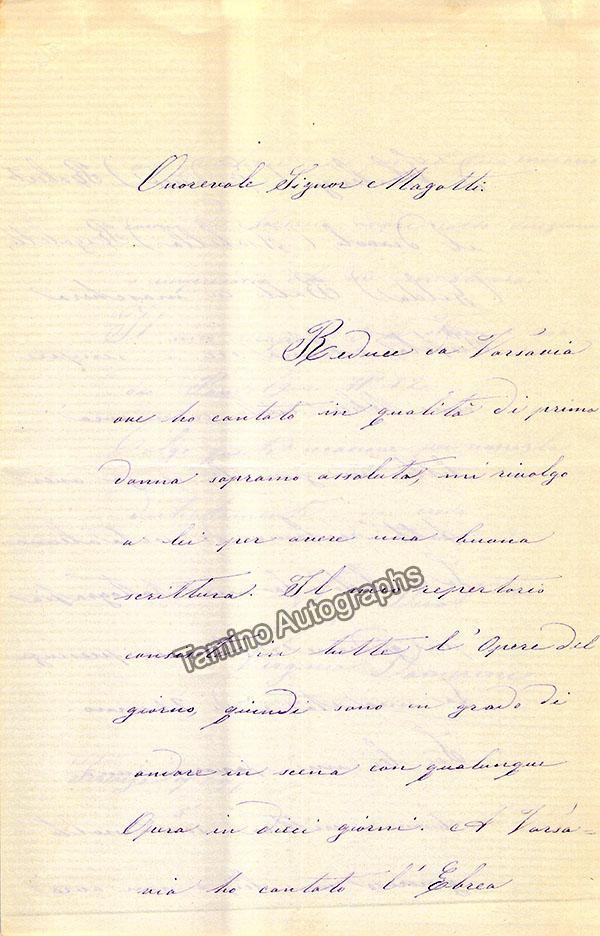 Onorevole Signor Magotti.
Reduce da Varsavia
ove ho cantato in qualità di prima
donna soprano assoluta, mi rivolgo
a lei per avere una buona
scrittura. Il mio repertorio
consiste in tutte l'Opere del
giorno, quindi sono in grado di
andare in scena con qualunque
Opera in dieci giorni. A Varsa=
via ho cantato l'Ebrea
Tamino Autographs